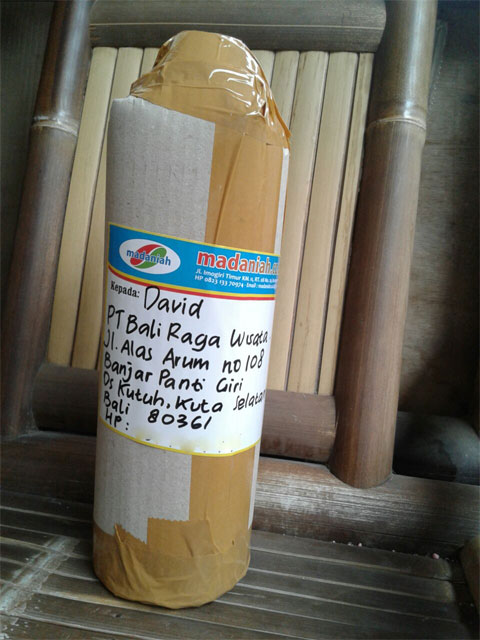 madaniah
madaniah.
Jl. Imogiri Timur KM.
HP 0823 133 70974 - Email :
Kepada: David
PT Bali Raga Wisata
Jl. Alas Arum no 108
Banjar Panti Giri
Ds Kutuh, Kuta Selatan
Bali 80361
HP: